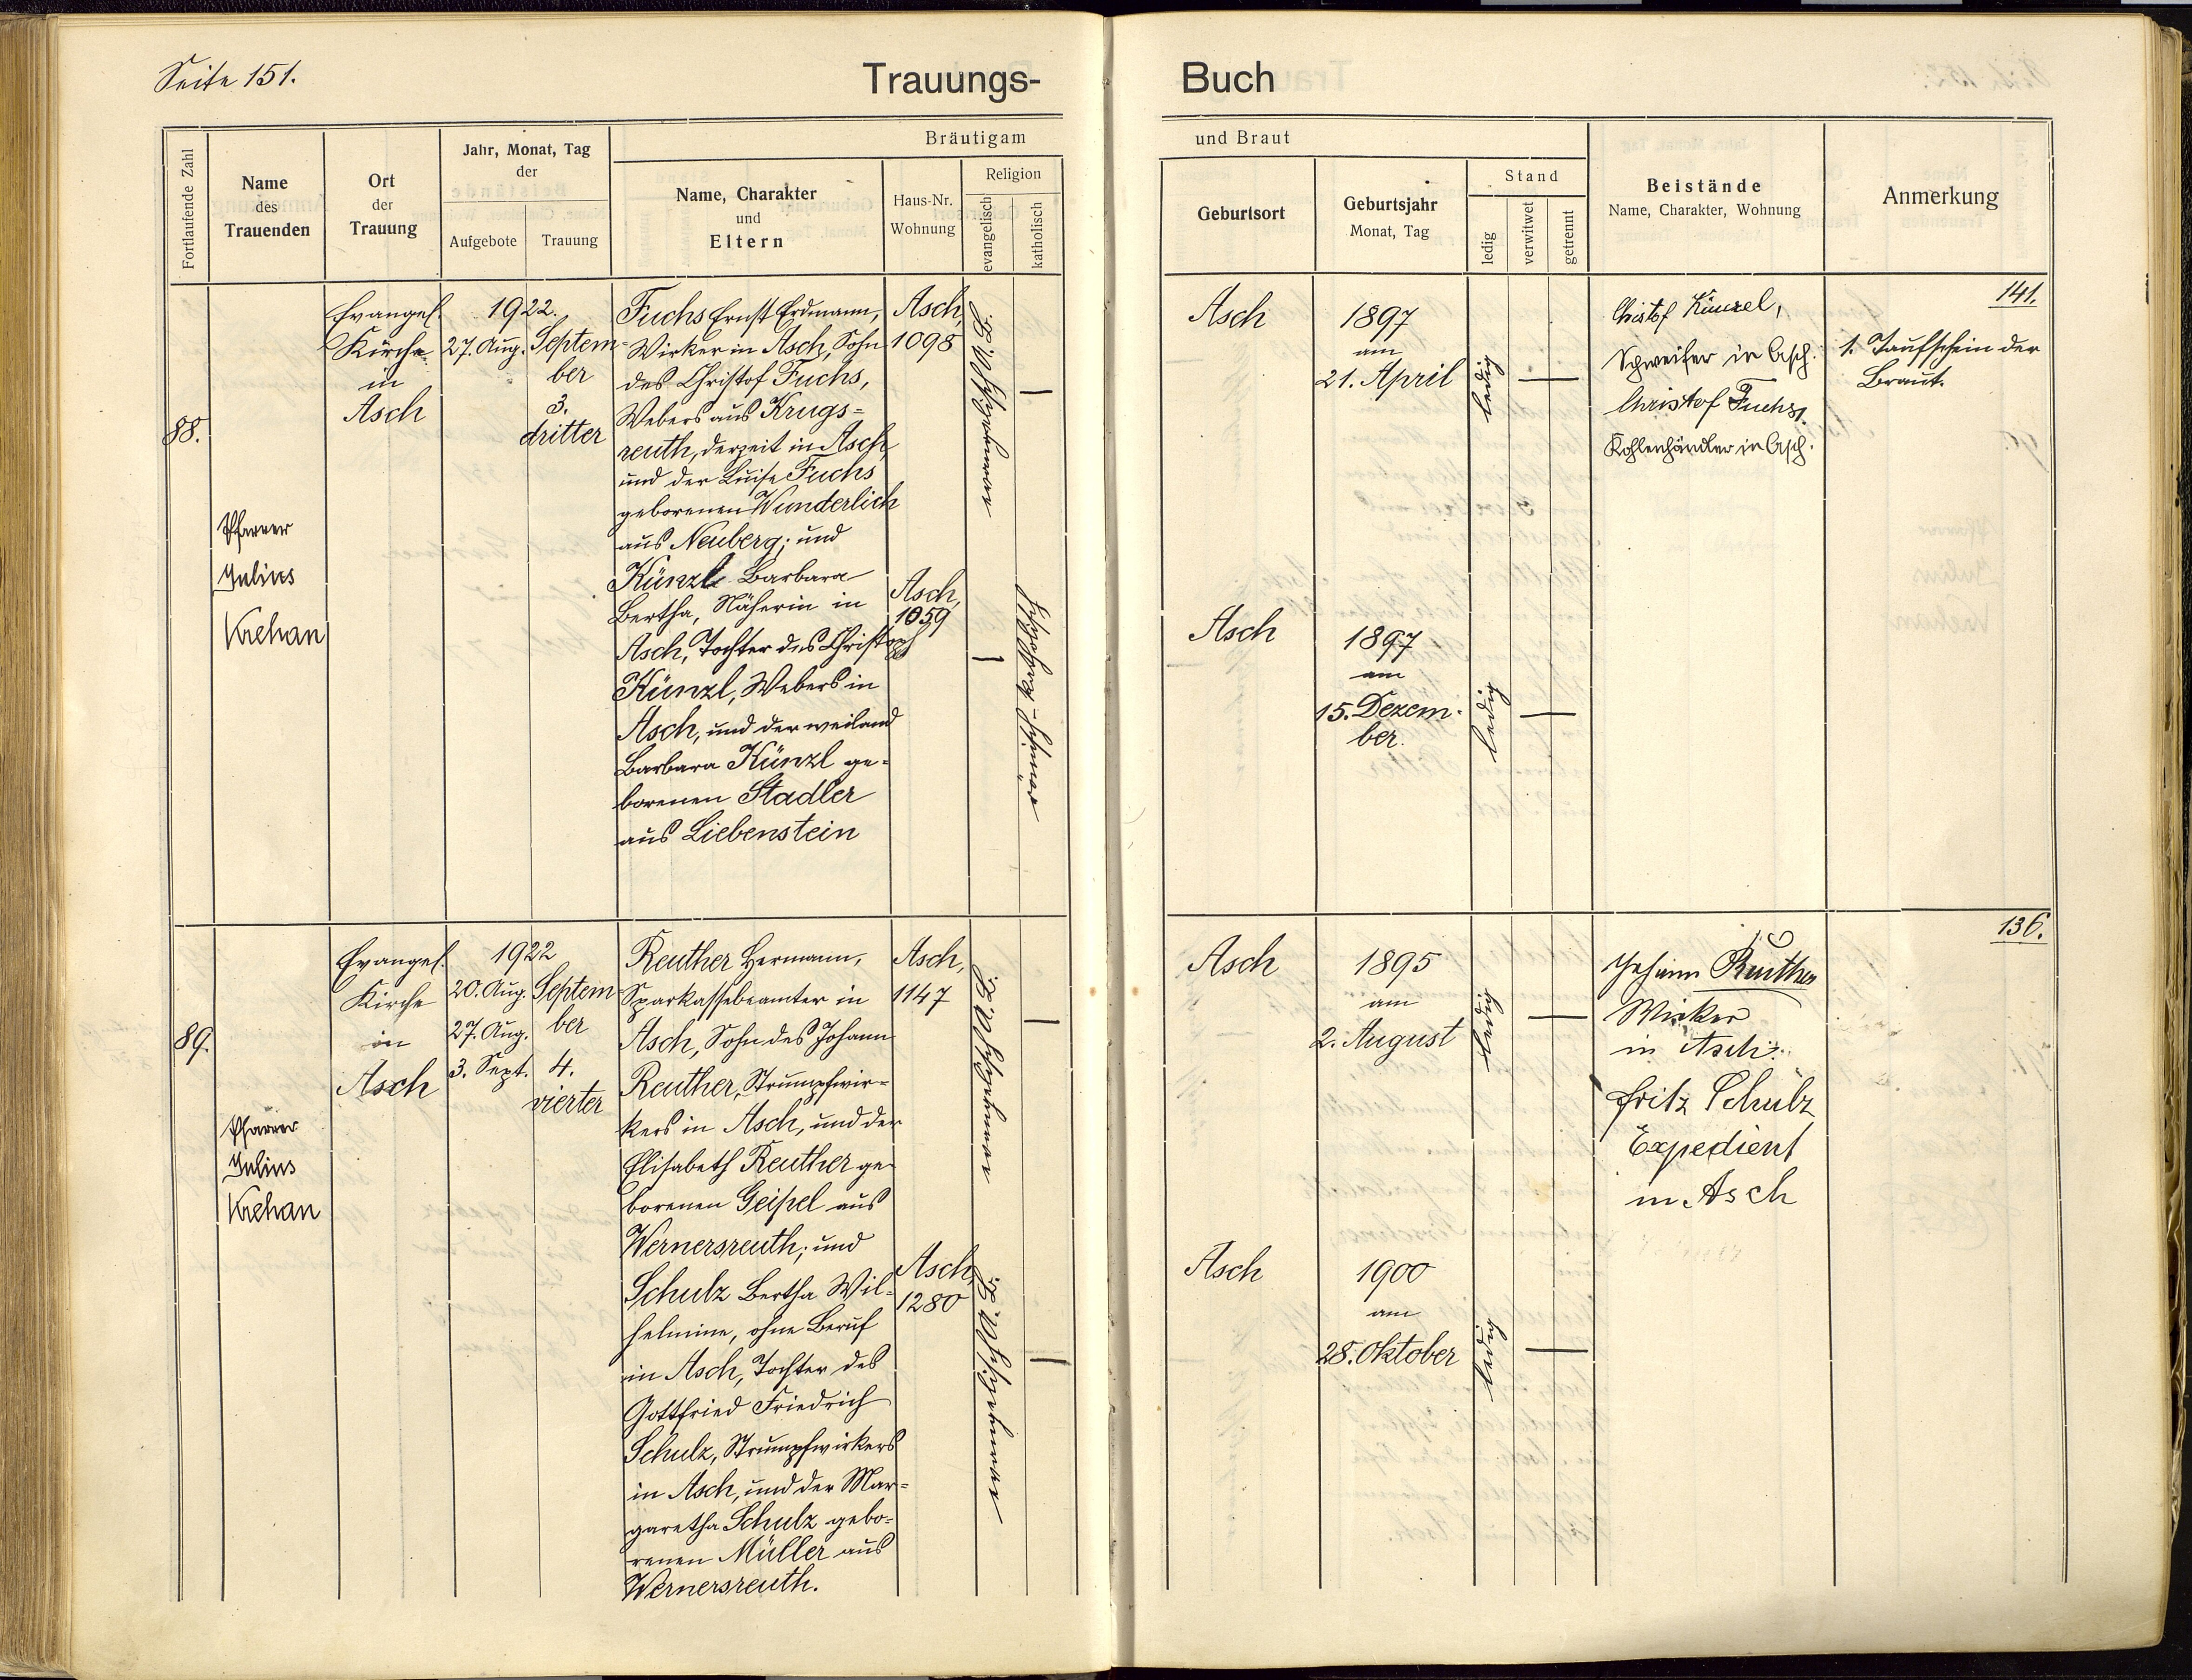 Seite 151.
Trauungs-
Buch
Fortlaufende Zahl
Name
des
Trauenden
Ort
der
Trauung
Jahr, Monat, Tag
der
Aufgebote
Trauung
Bräutigam
Name, Charakter
und
Eltern
Haus-Nr.
Wohnung
Religion
evangelisch
katholisch
und Braut
Geburtsort
Geburtsjahr
Monat, Tag
Stand
ledig
verwitwet
getrennt
Beistände
Name, Charakter, Wohnung
Anmerkung
88.
Pfarrer
Julius
Krehan
Evangel.
Kirche
in
Asch
1922.
27. Aug.
Septem-
ber
3.
dritter
Fuchs Ernst Erdmann,
Wirker in Asch, Sohn
des Christof Fuchs,
Webers aus Krugs=
reuth, derzeit in Asch,
und der Luise Fuchs
geborenen Wunderlich
aus Neuberg; und
Künzl Barbara
Bertha, Näherin in
Asch, Tochter des Christoph
Künzl, Webers in
Asch, und der weiland
Barbara Künzl ge=
borenen Stadler
aus Liebenstein
Asch,
1098
Asch,
1059
römisch-katholisch
Asch
1897
am
21. April
ledig
Asch
1897
am
15. Dezem-
ber.
ledig
Christof Künzel,
Schweifer in Asch.
Christof Fuchs,
Kohlenhändler in Asch.
141.
1. Taufschein der
Braut.
89.
Pfarrer
Julius
Krehan
Evangel.
Kirche
in
Asch
1922
20. Aug.
27. Aug.
3. Sept.
Septem
ber
4.
vierter
Reuther Hermann,
Sparkassebeamter in
Asch, Sohn des Johann
Reuther, Strumpfwir=
kers in Asch, und der
Elisabeth Reuther ge
borenen Geipel aus
Wernersreuth; und
Schulz Bertha Wil=
helmine, ohne Beruf
in Asch, Tochter des
Gottfried Friedrich
Schulz, Strumpfwirkers
in Asch, und der Mar=
garetha Schulz gebo=
renen Müller aus
Wernersreuth.
Asch,
1147
Asch,
1280
Asch
1895
am
2. August
ledig
Asch
1900
am
28. Oktober
ledig
Johann Reuther
Wirker
in Asch.
Fritz Schulz
Expedient
in Asch
136.